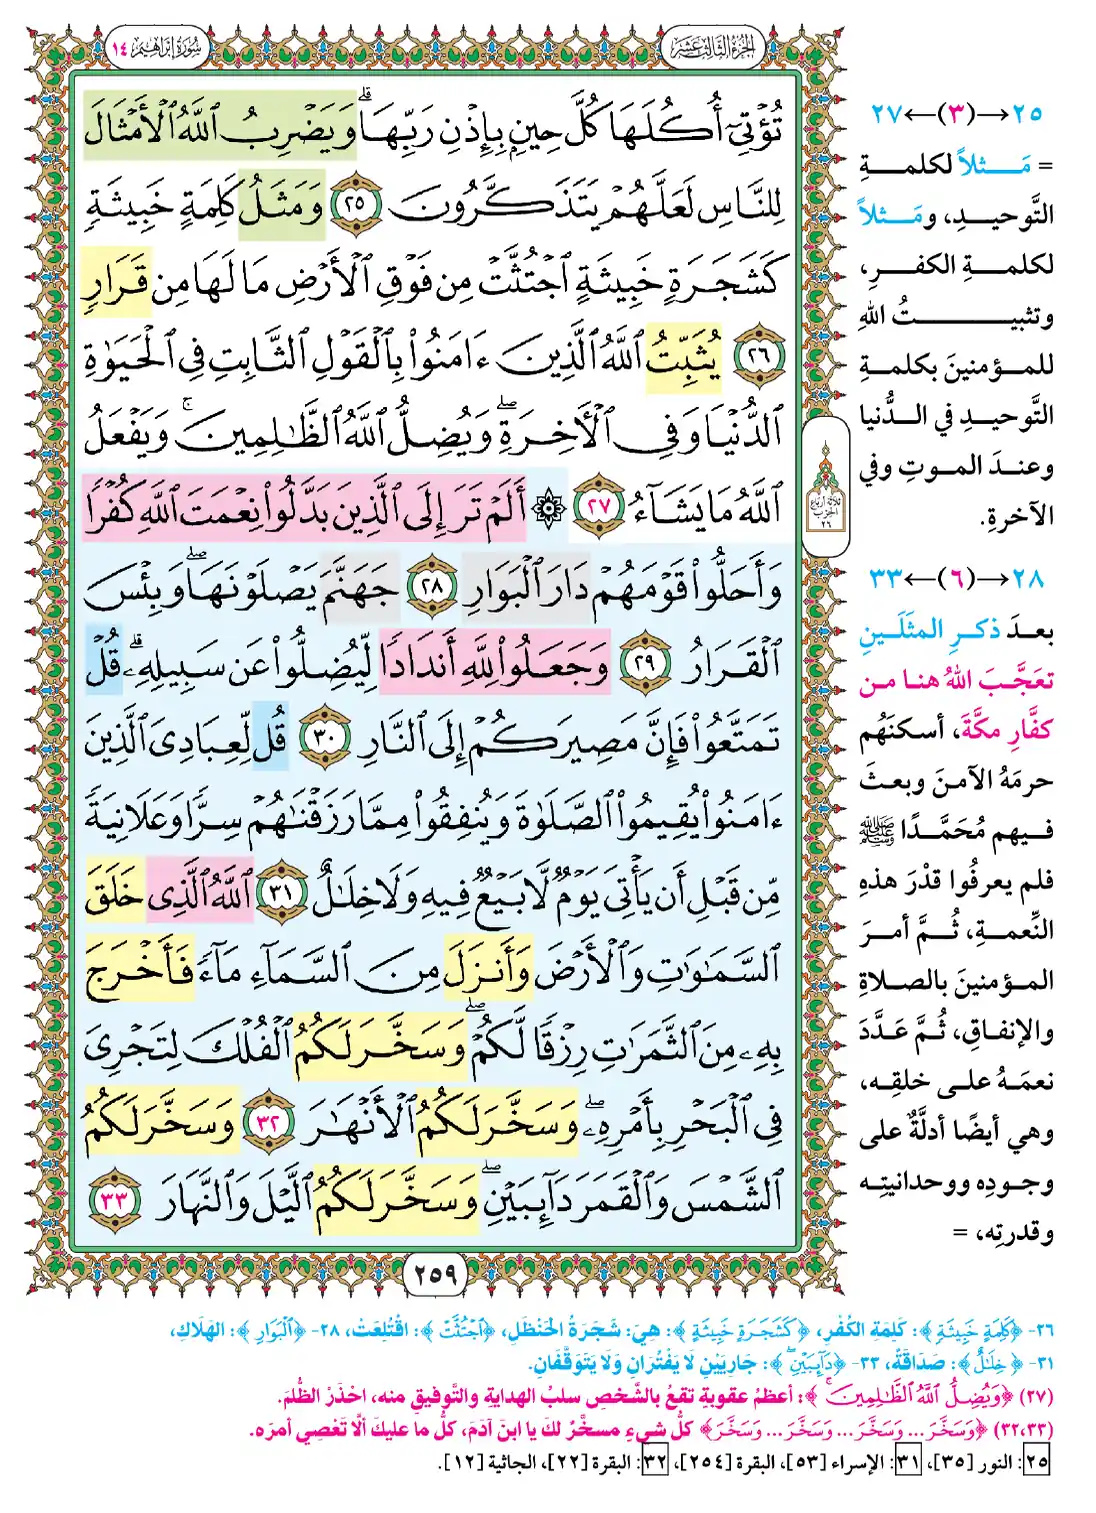 الجزء الثالث عشر
سورة إبراهيم ١٤
تُؤْتِىٓ أُكُلَهَا كُلَّ حِينٍۭ بِإِذْنِ رَبِّهَا ۗ وَيَضْرِبُ ٱللَّهُ ٱلْأَمْثَالَ
لِلنَّاسِ لَعَلَّهُمْ يَتَذَكَّرُونَ ٢٥ وَمَثَلُ كَلِمَةٍ خَبِيثَةٍ
كَشَجَرَةٍ خَبِيثَةٍ ٱجْتُثَّتْ مِن فَوْقِ ٱلْأَرْضِ مَا لَهَا مِن قَرَارٍ
٢٦ يُثَبِّتُ ٱللَّهُ ٱلَّذِينَ ءَامَنُوا۟ بِٱلْقَوْلِ ٱلثَّابِتِ فِى ٱلْحَيَوٰةِ
ٱلدُّنْيَا وَفِى ٱلْءَاخِرَةِ ۖ وَيُضِلُّ ٱللَّهُ ٱلظَّٰلِمِينَ ۚ وَيَفْعَلُ
ٱللَّهُ مَا يَشَآءُ ٢٧ ۞ أَلَمْ تَرَ إِلَى ٱلَّذِينَ بَدَّلُوا۟ نِعْمَتَ ٱللَّهِ كُفْرًا
وَأَحَلُّوا۟ قَوْمَهُمْ دَارَ ٱلْبَوَارِ ٢٨ جَهَنَّمَ يَصْلَوْنَهَا ۖ وَبِئْسَ
ٱلْقَرَارُ ٢٩ وَجَعَلُوا۟ لِلَّهِ أَندَادًا لِّيُضِلُّوا۟ عَن سَبِيلِهِۦ ۗ قُلْ
تَمَتَّعُوا۟ فَإِنَّ مَصِيرَكُمْ إِلَى ٱلنَّارِ ٣٠ قُل لِّعِبَادِىَ ٱلَّذِينَ
ءَامَنُوا۟ يُقِيمُوا۟ ٱلصَّلَوٰةَ وَيُنفِقُوا۟ مِمَّا رَزَقْنَٰهُمْ سِرًّا وَعَلَانِيَةً
مِّن قَبْلِ أَن يَأْتِىَ يَوْمٌ لَّا بَيْعٌ فِيهِ وَلَا خِلَٰلٌ ٣١ ٱللَّهُ ٱلَّذِى خَلَقَ
ٱلسَّمَٰوَٰتِ وَٱلْأَرْضَ وَأَنزَلَ مِنَ ٱلسَّمَآءِ مَآءً فَأَخْرَجَ
بِهِۦ مِنَ ٱلثَّمَرَٰتِ رِزْقًا لَّكُمْ ۖ وَسَخَّرَ لَكُمُ ٱلْفُلْكَ لِتَجْرِىَ
فِى ٱلْبَحْرِ بِأَمْرِهِۦ ۖ وَسَخَّرَ لَكُمُ ٱلْأَنْهَٰرَ ٣٢ وَسَخَّرَ لَكُمُ
ٱلشَّمْسَ وَٱلْقَمَرَ دَآئِبَيْنِ ۖ وَسَخَّرَ لَكُمُ ٱلَّيْلَ وَٱلنَّهَارَ ٣٣
ثلاثة أرباع
الحزب
٢٦
٢٥٩
٢٥→(٣)←٢٧
= مَثلاً لكلمةِ
التَّوحيدِ، ومَثلاً
لكلمةِ الكفرِ،
وتثبيتُ اللهِ
للمؤمنينَ بكلمةِ
التَّوحيدِ في الدُّنيا
وعندَ الموتِ وفي
الآخرةِ.
٢٨→(٦)←٣٣
بعدَ ذكرِ المثَلَينِ
تعَجَّبَ اللهُ هنا من
كفَّارِ مكَّةَ، أسكنَهُم
حرمَهُ الآمنَ وبعثَ
فيهم مُحَمَّدًا ﷺ
فلم يعرفُوا قدْرَ هذهِ
النِّعمةِ، ثُمَّ أمرَ
المؤمنينَ بالصلاةِ
والإنفاقِ، ثُمَّ عَدَّدَ
نعمَهُ على خلقِه،
وهي أيضًا أدلَّةٌ على
وجودِه ووحدانيتِه
وقدرتِه، =
٢٦- ﴿كَلِمَةٍ خَبِيثَةٍ﴾: كَلِمَةِ الكُفْرِ، ﴿كَشَجَرَةٍ خَبِيثَةٍ﴾: هِيَ: شَجَرَةُ الحَنْظَلِ، ﴿ٱجْتُثَّتْ﴾: اقْتُلِعَتْ، ٢٨- ﴿ٱلْبَوَارِ﴾: الهَلَاكِ،
٣١- ﴿خِلَٰلٌ﴾: صَدَاقَةٌ، ٣٣- ﴿دَآئِبَيْنِ ۖ﴾: جَارِيَيْنِ لَا يَفْتُرَانِ وَلَا يَتَوَقَّفَانِ.
(٢٧) ﴿وَيُضِلُّ ٱللَّهُ ٱلظَّٰلِمِينَ ۚ﴾: أعظمُ عقوبةٍ تقعُ بالشَّخصِ سلبُ الهدايةِ والتَّوفيقِ منه، احْذَرْ الظُّلمَ.
(٣٢،٣٣) ﴿وَسَخَّرَ ... وَسَخَّرَ ... وَسَخَّرَ ... وَسَخَّرَ﴾ كلُّ شيءٍ مسخَّرٌ لكَ يا ابنَ آدَمَ، كلُّ ما عليكَ ألَّا تَعْصِي أمرَه.
٢٥: النور [٣٥]، ٣١: الإسراء [٥٣]، البقرة [٢٥٤]، ٣٢: البقرة [٢٢]، الجاثية [١٢].